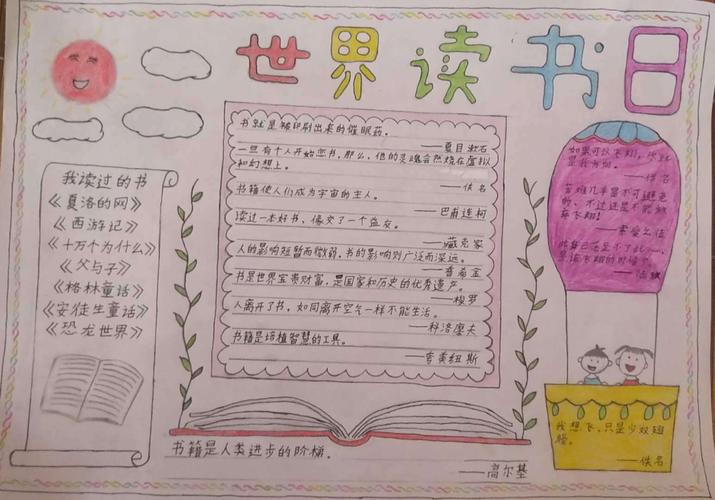 世界读书日
我读过的书
《夏洛的网》
《西游记》
《十万个为什么》
《父与子》
《格林童话》
《安徒生童话》
《恐龙世界》
书就是被印刷出来的催眠药。
——夏目漱石
一旦有个人开始恋书,那么,他的灵魂会燃烧在虚拟
和幻想上。
——佚名
书籍使人们成为宇宙的主人。
——巴甫连柯
读过一本好书、像交了一个益友。
——臧克家
人的影响短暂而微弱,书的影响则广泛而深远。
——普希金
书是世界宝贵财富,是国家和历史的优秀遗产。
——梭罗
人离开了书,如同离开空气一样不能生活。
——科洛廖夫
书籍是培植智慧的工具。
——夸美纽斯
书籍是人类进步的阶梯。
——高尔基
如果可以飞翔,
——佚名
苦难几乎是不可避免
的、不过还是不能放
弃飞翔!
——索爱
我想飞、只是少双翅
膀。
——佚名